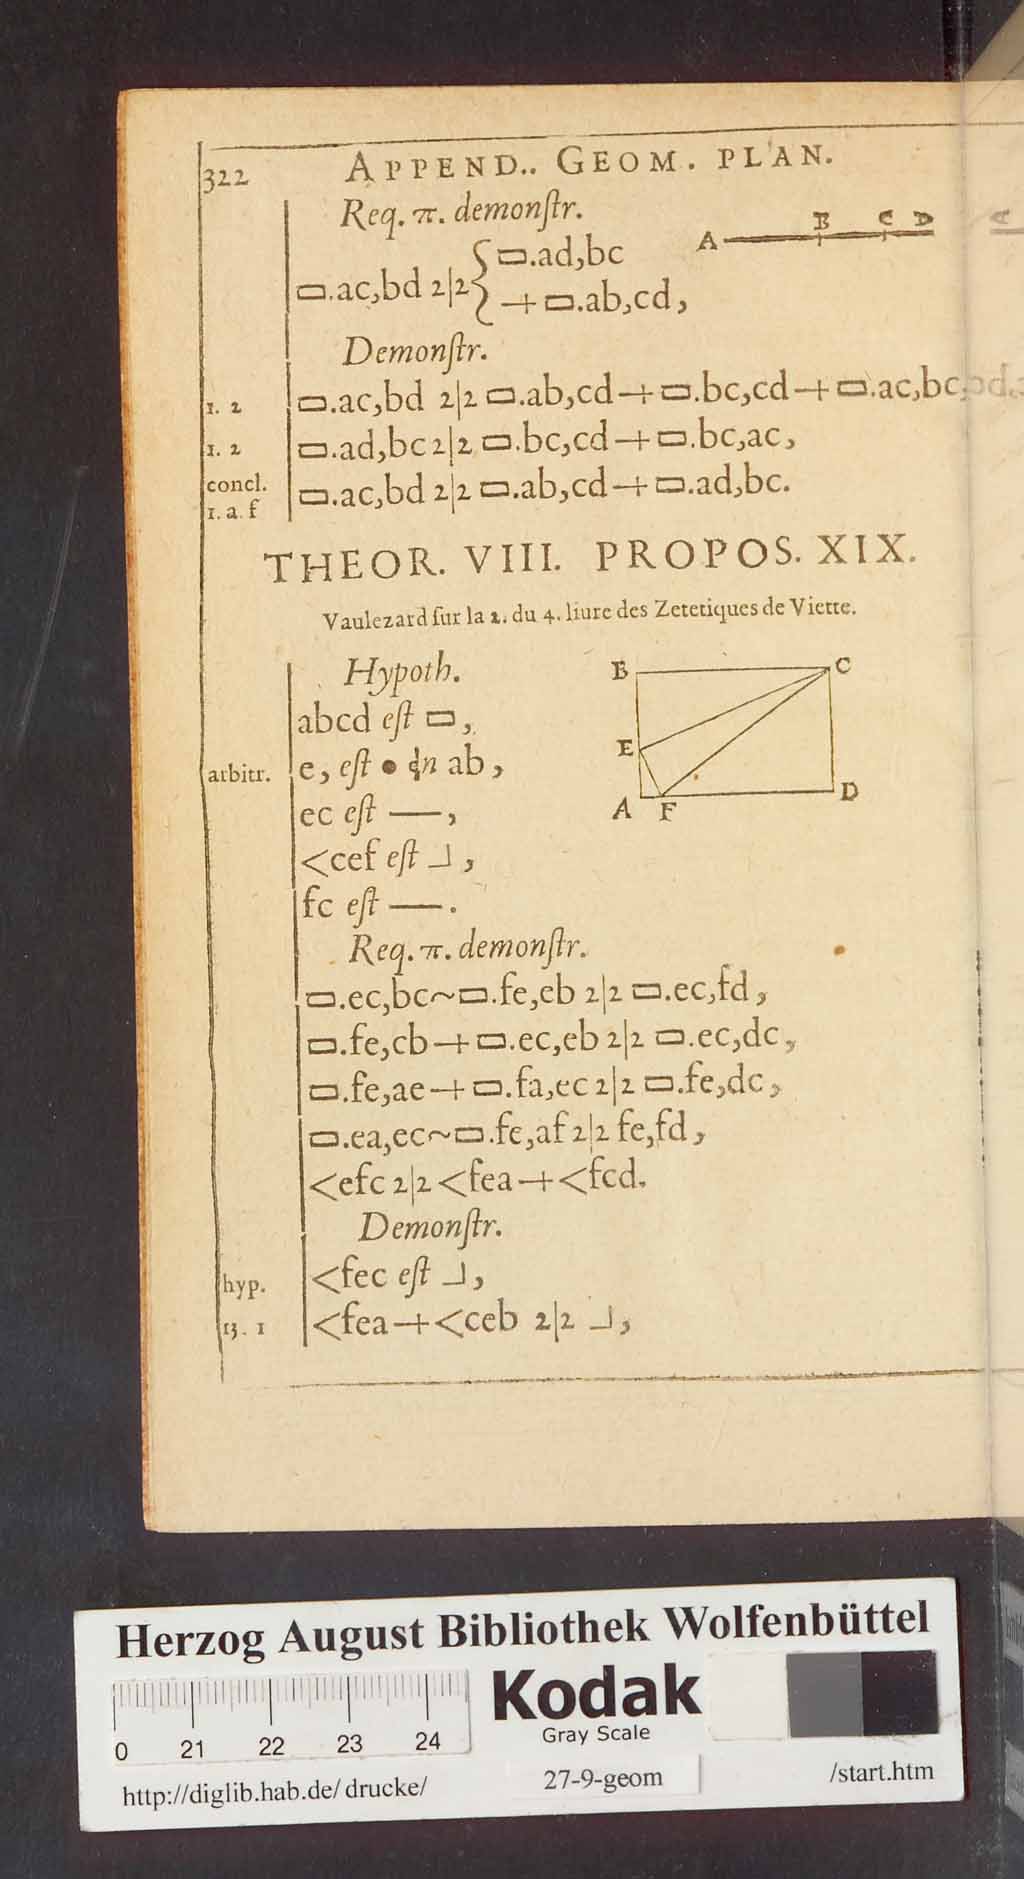 322 APPEND.. GEOM. PLAN.
Req. π. demonſtr.
A B C D
▭.ac,bd 2|2 { ▭.ad,bc
+ ▭.ab,cd,
Demonſtr.
1. 2 ▭.ac,bd 2|2 ▭.ab,cd + ▭.bc,cd + ▭.ac,bc,
1. 2 ▭.ad,bc 2|2 ▭.bc,cd + ▭.bc,ac,
concl.
1. a. f ▭.ac,bd 2|2 ▭.ab,cd + ▭.ad,bc.
THEOR. VIII. PROPOS. XIX.
Vaulezard ſur la 2. du 4. liure des Zetetiques de Viette.
Hypoth.
abcd eſt ▭,
arbitr. e, eſt • in ab,
ec eſt —,
<cef eſt ⅃,
fc eſt —.
B C
E
A F D
Req. π. demonſtr.
▭.ec,bc ~ ▭.fe,eb 2|2 ▭.ec,fd,
▭.fe,cb + ▭.ec,eb 2|2 ▭.ec,dc,
▭.fe,ae + ▭.fa,ec 2|2 ▭.fe,dc,
▭.ea,ec ~ ▭.fe,af 2|2 fe,fd,
<efc 2|2 <fea + <fcd.
Demonſtr.
hyp. <fec eſt ⅃,
13. 1 <fea + <ceb 2|2 ⅃,
Herzog August Bibliothek Wolfenbüttel
Kodak
Gray Scale
0 21 22 23 24
http://diglib.hab.de/ drucke/ 27-9-geom /start.htm